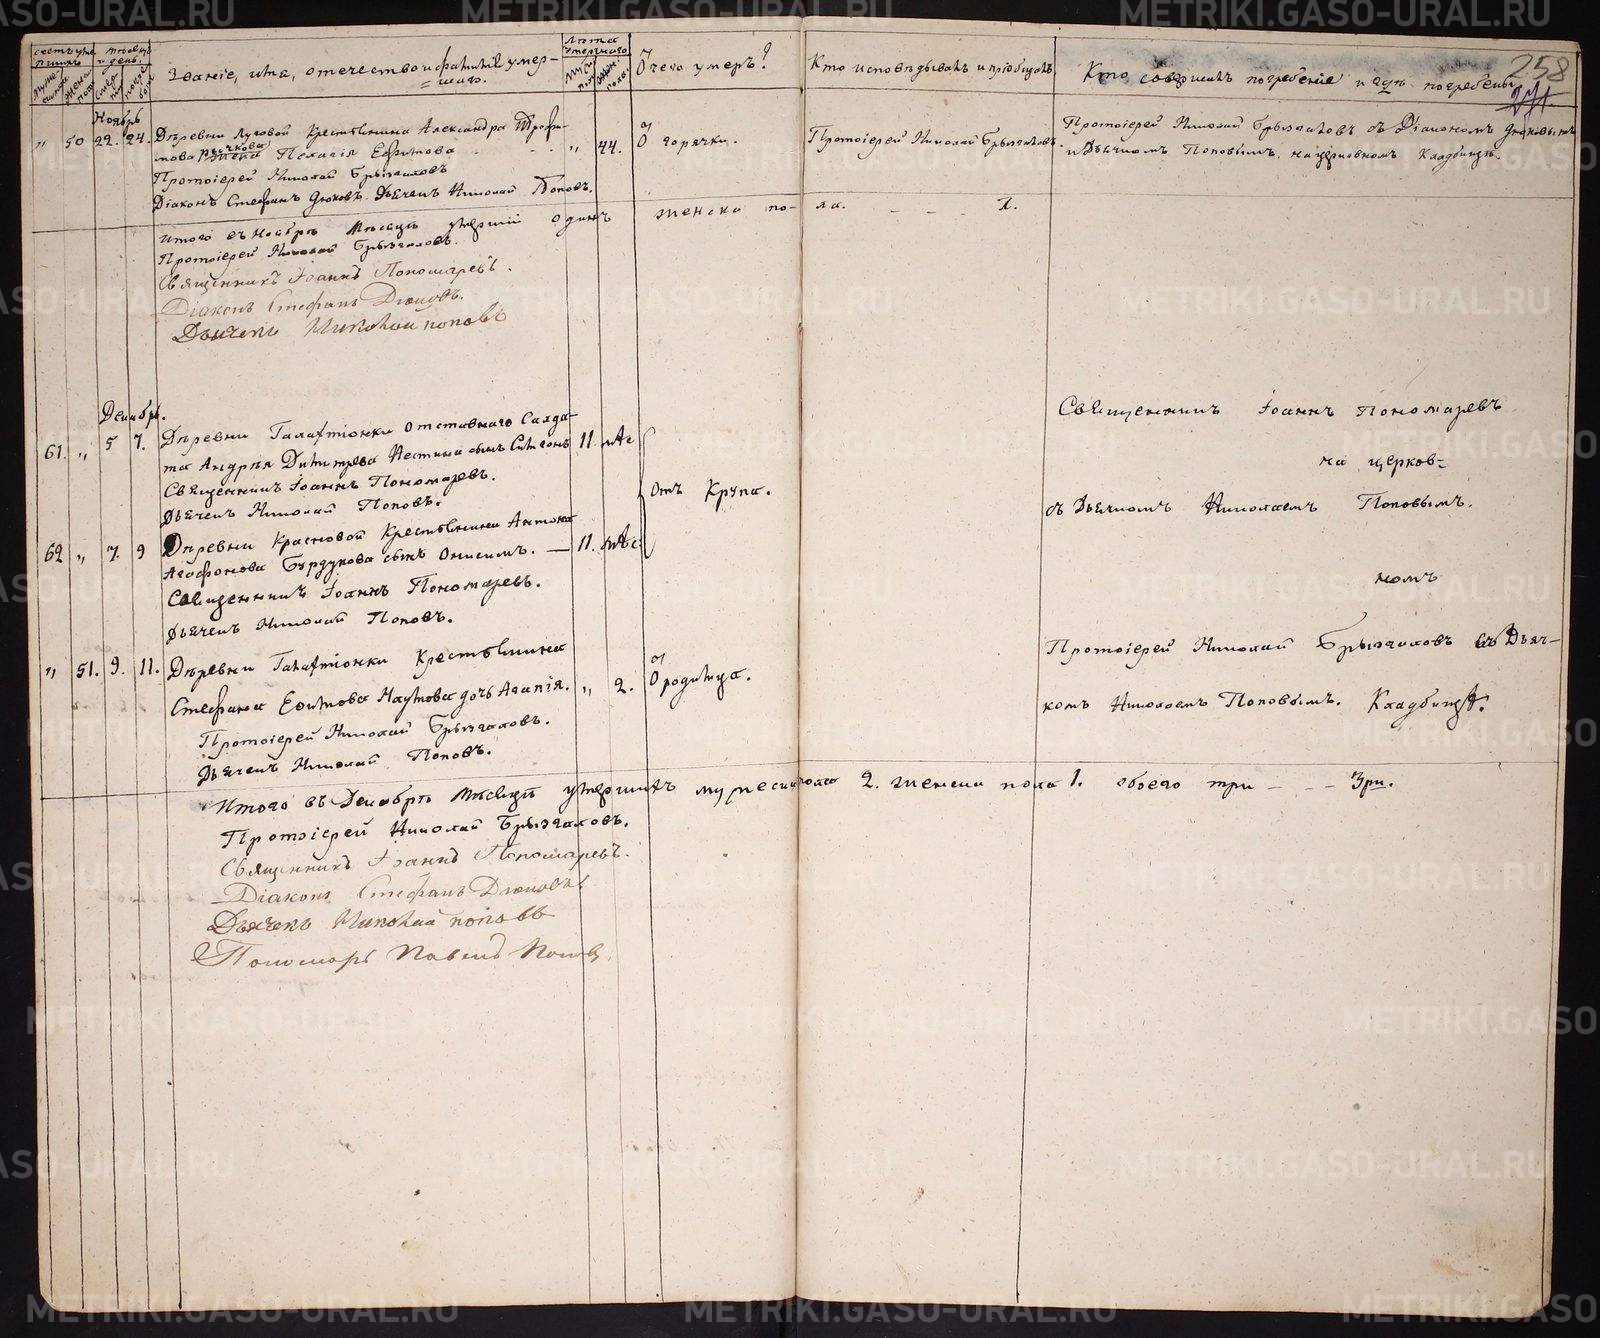 Званіе, имя, отечество и фамилія умер-
шаго.
Лѣта
умершаго
Отчего умеръ?
Кто исповѣдывалъ и пріобщалъ
Кто совершалъ погребеніе и гдѣ погребены
258
Ноябрь
" 50 22. 24. Деревни Луговой Крестьянина Александра Трофи-
мова Рычкова жена Пелагія Ефимова " 44.
Отъ горячки.
Протоіерей Николай Брызгаловъ
Протоіерей Николай Брызгаловъ съ Діакономъ Дюковымъ
и Дьячкомъ Поповымъ. на церковномъ Кладбищѣ.
Протоіерей Николай Брызгаловъ
Діаконъ Стефанъ Дюковъ. Дьячекъ Николай Поповъ.
Итого въ Ноябрѣ Мѣсяцѣ умершій одинъ женска по- ла. - - - 1.
Протоіерей Николай Брызгаловъ.
Священникъ Іоаннъ Пономаревъ.
Діаконъ Стефанъ Дюковъ.
Дьячекъ Николай Поповъ
Декабрь.
61. " 5 7. Деревни Галактіонки отставнаго Салда-
та Андрея Димитрева сынъ Симеонъ 11. мѣс
Священникъ Іоаннъ Пономаревъ.
Дьячекъ Николай Поповъ.
Отъ Крупа.
Священникъ Іоаннъ Пономаревъ
на церков-
съ Дьячкомъ Николаемъ Поповымъ.
62 " 7. 9 Деревни Красновой Крестьянина Антона
Агафонова Бурдукова сынъ Онисимъ. — 11. мѣс.
Священникъ Іоаннъ Пономаревъ.
Дьячекъ Николай Поповъ.
номъ
" 51. 9. 11. Деревни Галактіонки Крестьянина
Стефана Ефимова Наумова дочь Агапія. " 2.
Отъ родимца.
Протоіерей Николай Брызгаловъ съ Дьяч-
комъ Николаемъ Поповымъ. Кладбищѣ.
Протоіерей Николай Брызгаловъ.
Дьячекъ Николай Поповъ.
Итого въ Декабрѣ Мѣсяцѣ умершихъ мужеска пола 2. женска пола 1. обоего три - - - 3ри.
Протоіерей Николай Брызгаловъ.
Священникъ Іоаннъ Пономаревъ.
Діаконъ Стефанъ Дюковъ
Дьячекъ Николай Поповъ
Пономарь Павелъ Поповъ